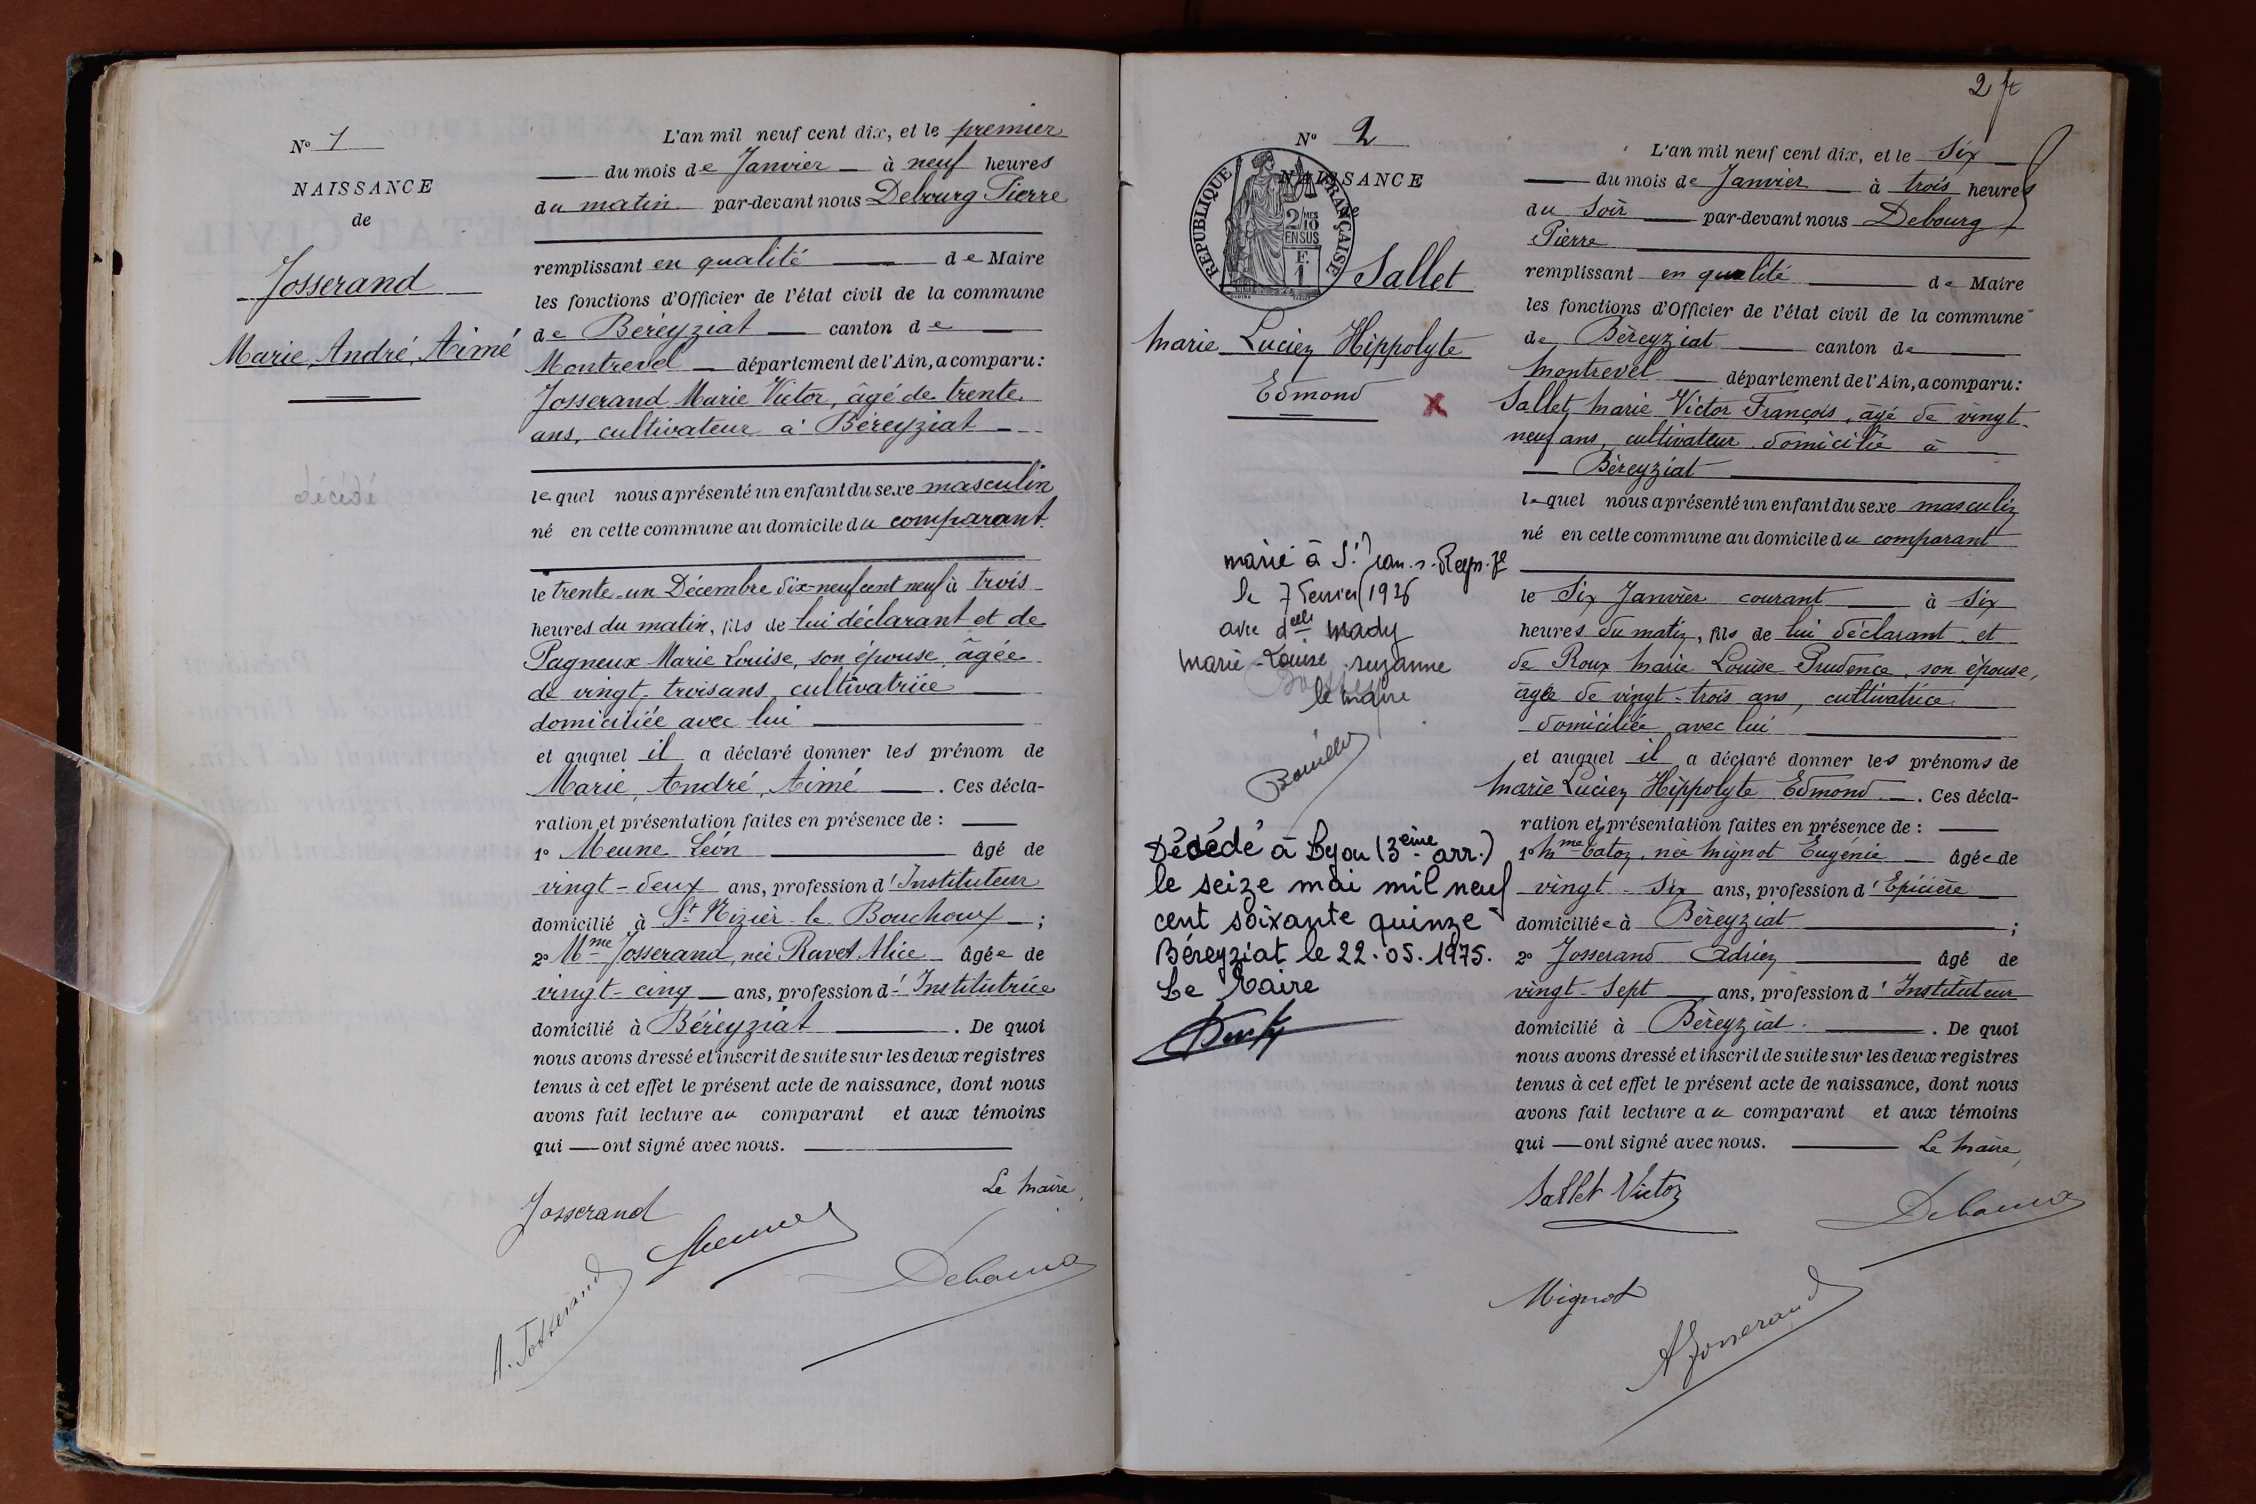 N° 1
NAISSANCE
de
Josserand
Marie, André, Aimé
L'an mil neuf cent dix, et le premier
du mois de Janvier à neuf heures
du matin par-devant nous Debourg Pierre
remplissant en qualité de Maire
les fonctions d'Officier de l'état civil de la commune
de Béreyziat canton de
Montrevel département de l'Ain, a comparu :
Josserand Marie Victor, âgé de trente
ans, cultivateur à Béreyziat
lequel nous a présenté un enfant du sexe masculin
né en cette commune au domicile du comparant
le trente-un Décembre dix-neuf cent neuf à trois
heures du matin, fils de lui déclarant et de
Pagneux Marie Louise, son épouse, âgée
de vingt-trois ans, cultivatrice
domiciliée avec lui
et auquel il a déclaré donner les prénom de
Marie, André, Aimé . Ces décla-
ration et présentation faites en présence de :
1° Meune Léon âgé de
vingt-deux ans, profession d'Instituteur
domicilié à St Nizier-le Bouchoux ;
2° Mme Josserand, née Ravet Alice âgée de
vingt-cinq ans, profession d'Institutrice
domicilié à Béreyziat . De quoi
nous avons dressé et inscrit de suite sur les deux registres
tenus à cet effet le présent acte de naissance, dont nous
avons fait lecture au comparant et aux témoins
qui ont signé avec nous.
Le Maire,
Josserand
Meune
A. Josserand
Debourg
2
N° 2
NAISSANCE
de
REPUBLIQUE FRANÇAISE
2/10
EN SUS
F.
1
Sallet
Marie Lucien Hippolyte
Edmond
X
marié à St Jean-s-Reyss.ze
le 7 Février 1926
avec delle Mady
Marie-Louise Suzanne
le maire
Décédé à Lyon (3eme arr.)
le seize mai mil neuf
cent soixante quinze
Béreyziat le 22.05.1975.
Le Maire
L'an mil neuf cent dix, et le Six
du mois de Janvier à trois heures
du Soir par-devant nous Debourg
Pierre
remplissant en qualité de Maire
les fonctions d'Officier de l'état civil de la commune
de Béreyziat canton de
Montrevel département de l'Ain, a comparu :
Sallet, Marie Victor François, âgé de vingt-
neuf ans, cultivateur domicilié à
Béreyziat
lequel nous a présenté un enfant du sexe masculin
né en cette commune au domicile du comparant
le Six Janvier courant à Six
heures du matin, fils de lui déclarant et
de Roux Marie Louise Prudence, son épouse,
âgée de vingt-trois ans, cultivatrice
domiciliée avec lui
et auquel il a déclaré donner les prénoms de
Marie Lucien Hippolyte Edmond . Ces décla-
ration et présentation faites en présence de :
1° Mme Caton, née Mignot Eugénie âgée de
vingt-Six ans, profession d'Epicière
domiciliée à Béreyziat ;
2° Josserand Adrien âgé de
vingt-Sept ans, profession d'Instituteur
domicilié à Béreyziat . De quoi
nous avons dressé et inscrit de suite sur les deux registres
tenus à cet effet le présent acte de naissance, dont nous
avons fait lecture au comparant et aux témoins
qui ont signé avec nous.
Le Maire,
Sallet Victor
Debourg
Mignot
A Josserand